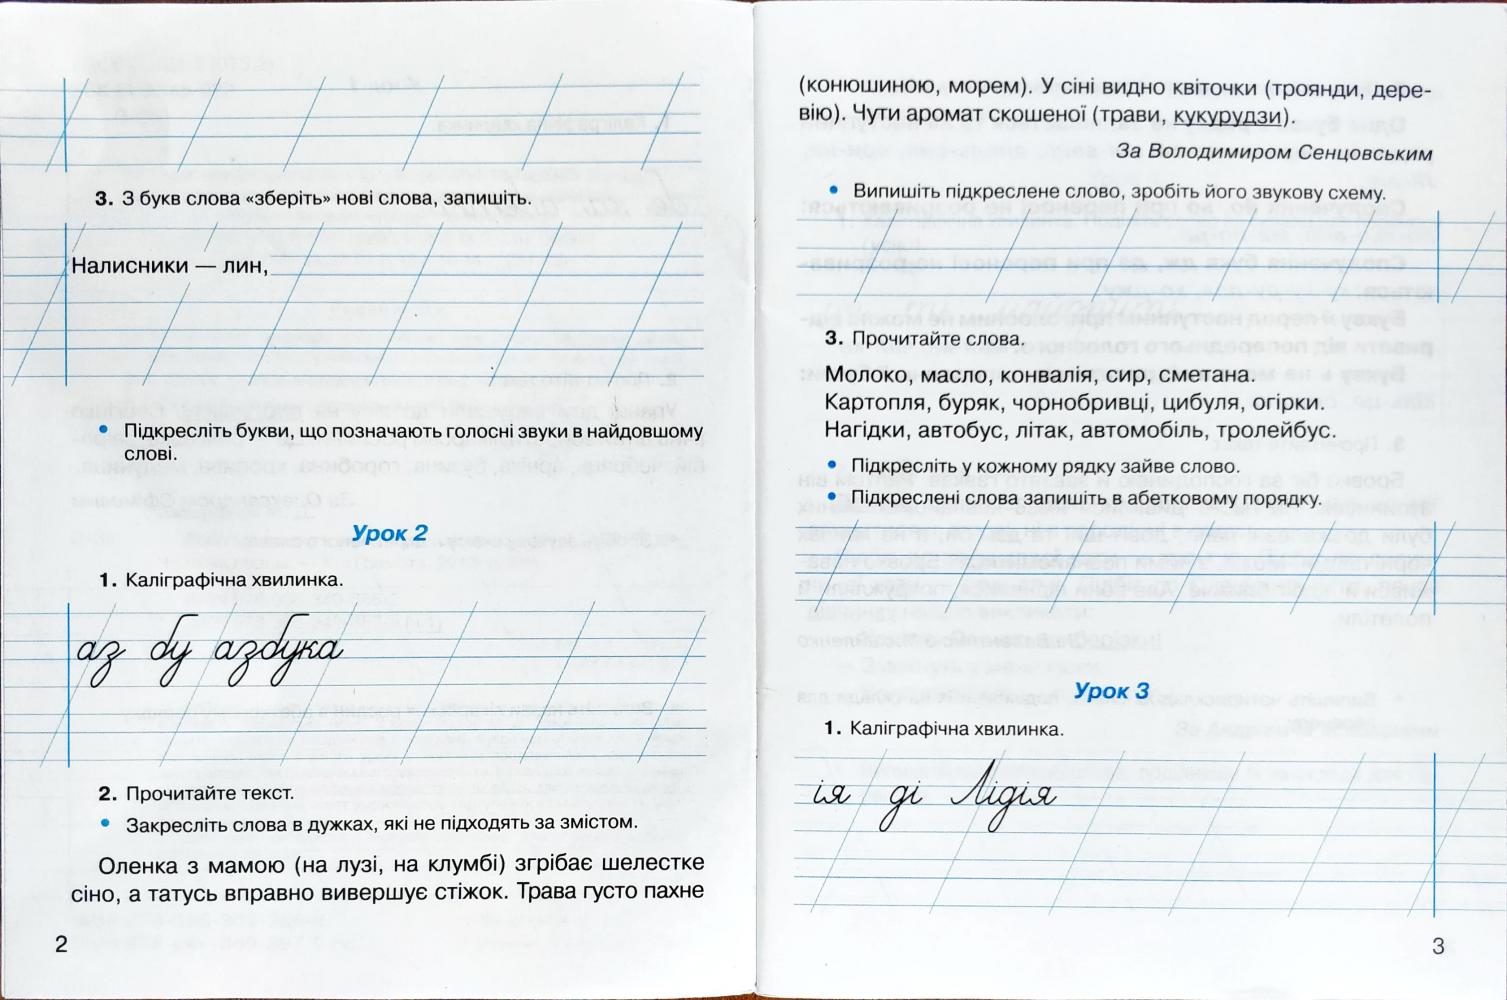 3. З букв слова «зберіть» нові слова, запишіть.
Налисники — лин,
• Підкресліть букви, що позначають голосні звуки в найдовшому
слові.
Урок 2
1. Каліграфічна хвилинка.
аз бу азбука
2. Прочитайте текст.
• Закресліть слова в дужках, які не підходять за змістом.
Оленка з мамою (на лузі, на клумбі) згрібає шелестке
сіно, а татусь вправно вивершує стіжок. Трава густо пахне
2
(конюшиною, морем). У сіні видно квіточки (троянди, дере-
вію). Чути аромат скошеної (трави, кукурудзи).
За Володимиром Сенцовським
• Випишіть підкреслене слово, зробіть його звукову схему.
3. Прочитайте слова.
Молоко, масло, конвалія, сир, сметана.
Картопля, буряк, чорнобривці, цибуля, огірки.
Нагідки, автобус, літак, автомобіль, тролейбус.
• Підкресліть у кожному рядку зайве слово.
• Підкреслені слова запишіть в абетковому порядку.
Урок 3
1. Каліграфічна хвилинка.
ія ді Лідія
3